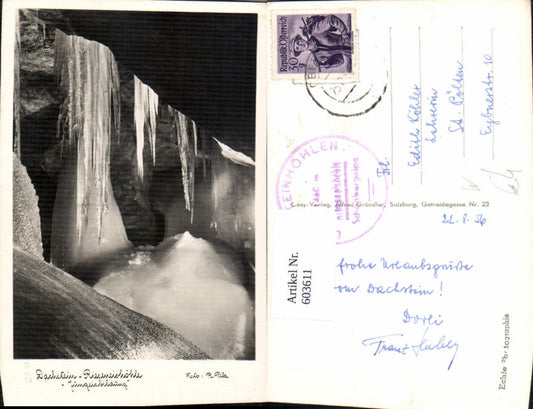 Dachstein - Rieseneishöhle
Foto:
Republik Österreich
30 g
EINHÖHLEN
Schönbergalm
Frl.
Edith Köhler
Lehrerin
St. Pölten
Eybnerstr. 10
Cosy-Verlag, Alfred Gründler, Salzburg, Getreidegasse Nr. 22
Artikel Nr.
603611
22. 8. 56
frohe Urlaubsgrüße
vom Dachstein!
Dorli
Franz
Echte Photographie